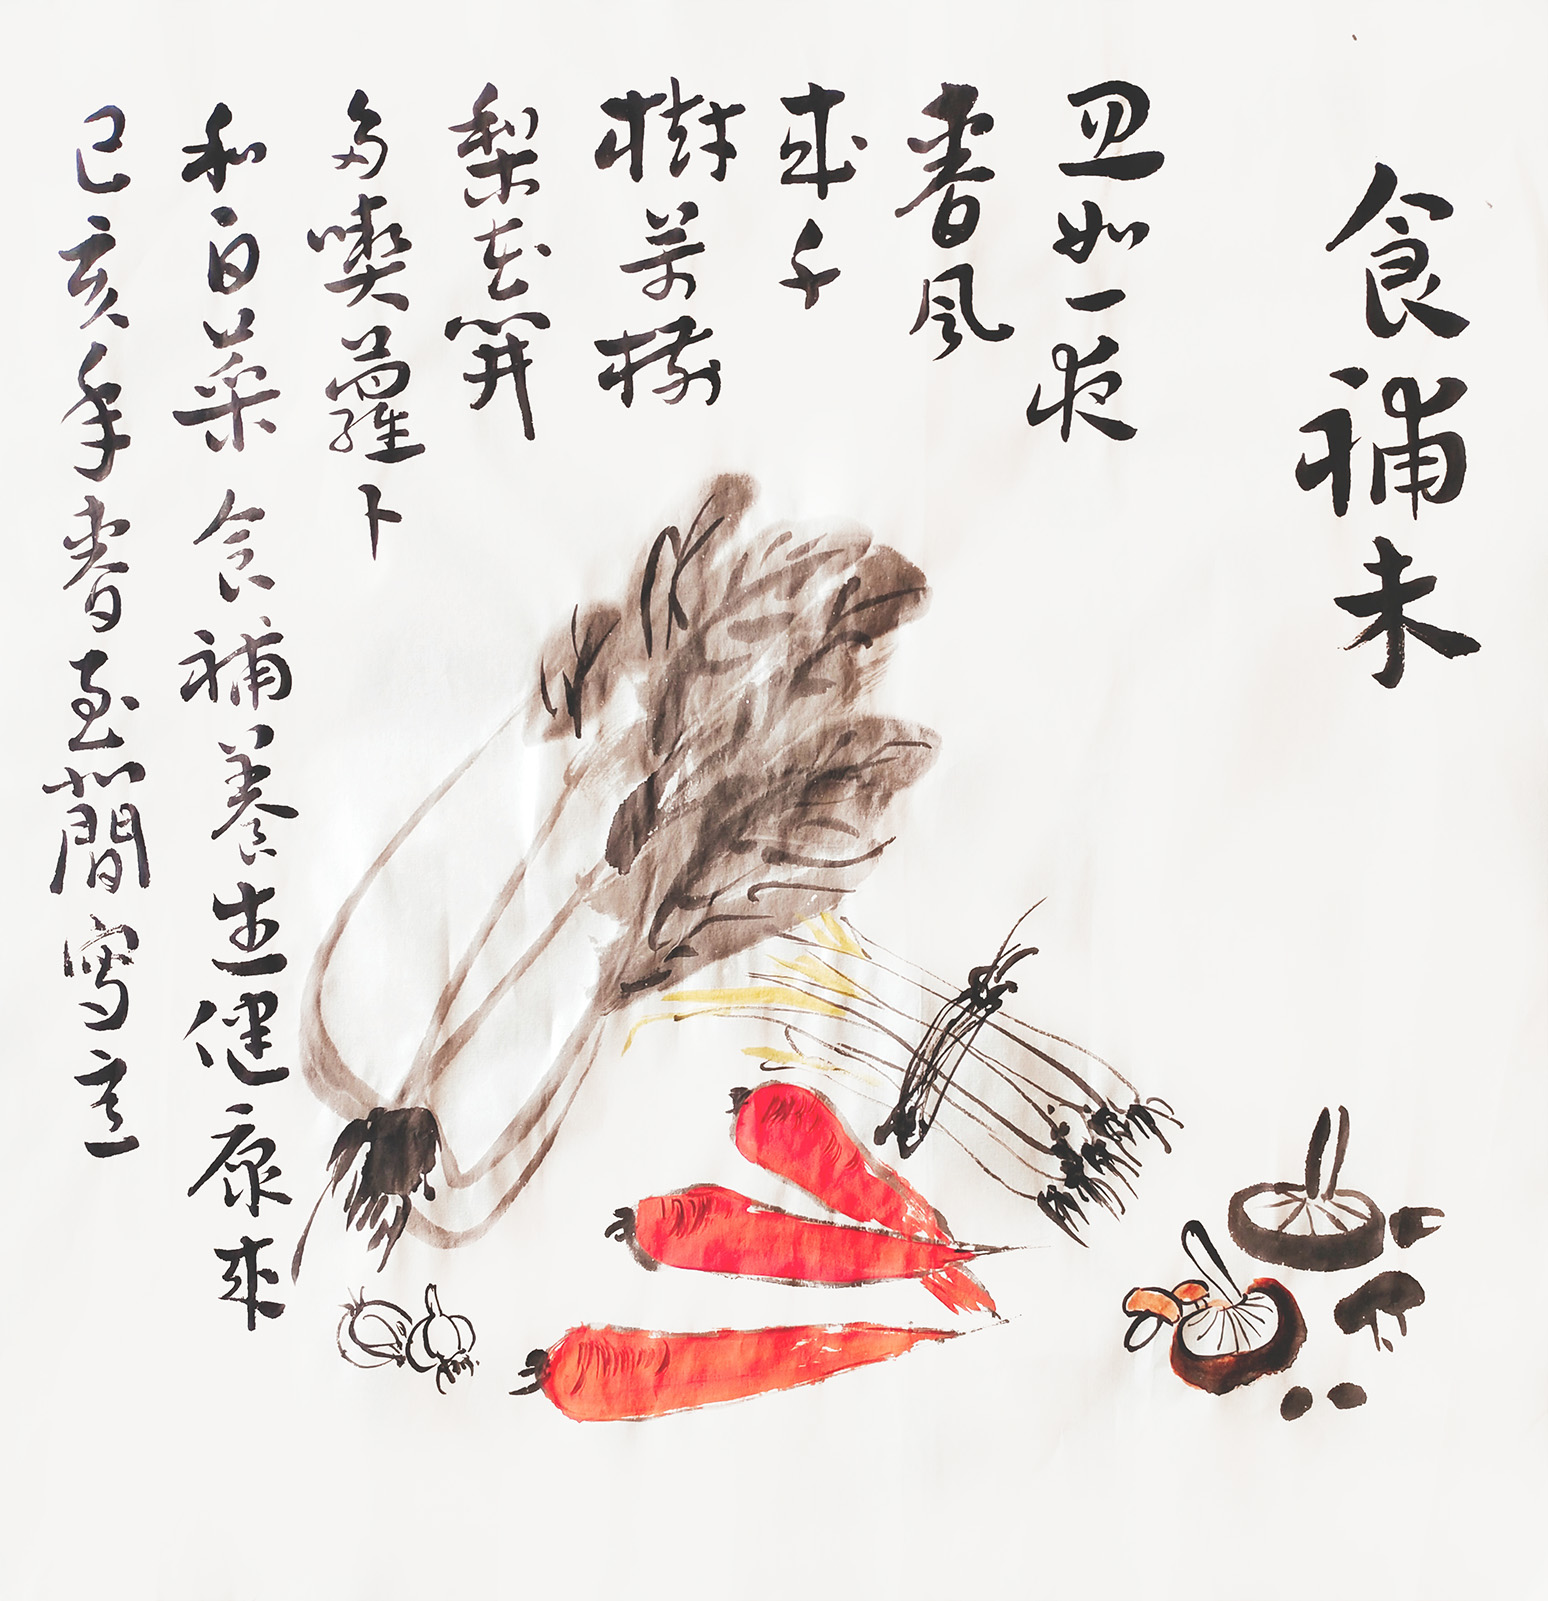 食補未
忽如一夜
春風
來千
樹萬樹
梨花開
多喫蘿卜
和白菜食補養生健康來
己亥年春至簡寫意